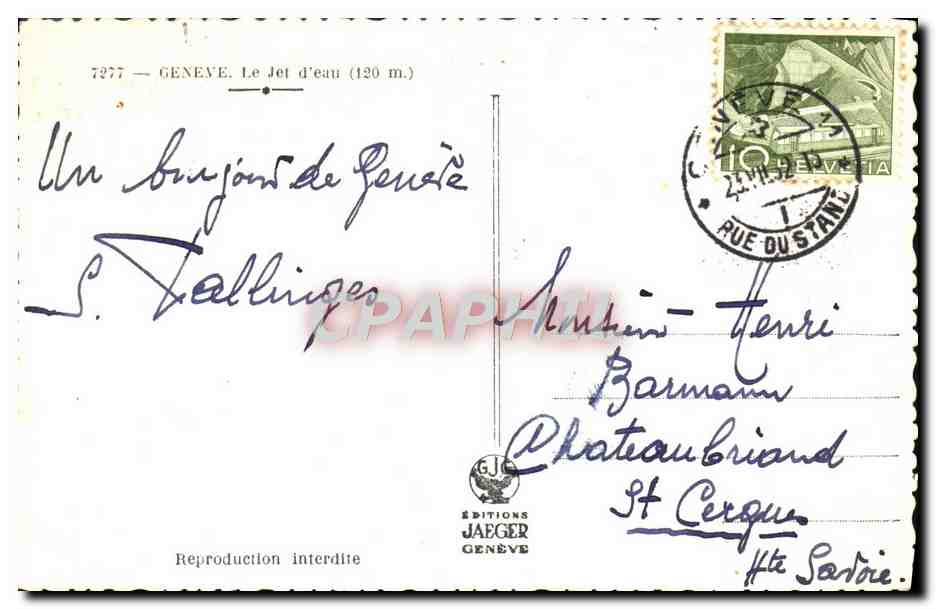 7277 — GENEVE. Le Jet d'eau (120 m.)
Un bonjour de Genève
S. Tallinges
CPAPHIL
GENEVE 11
23.VII.52-15
1
RUE DU STAND
10 HELVETIA
Monsieur Henri
Barmann
Chateaubriand
St Cergues
Hte Savoie.
GJE
ÉDITIONS
JAEGER
GENÈVE
Reproduction interdite